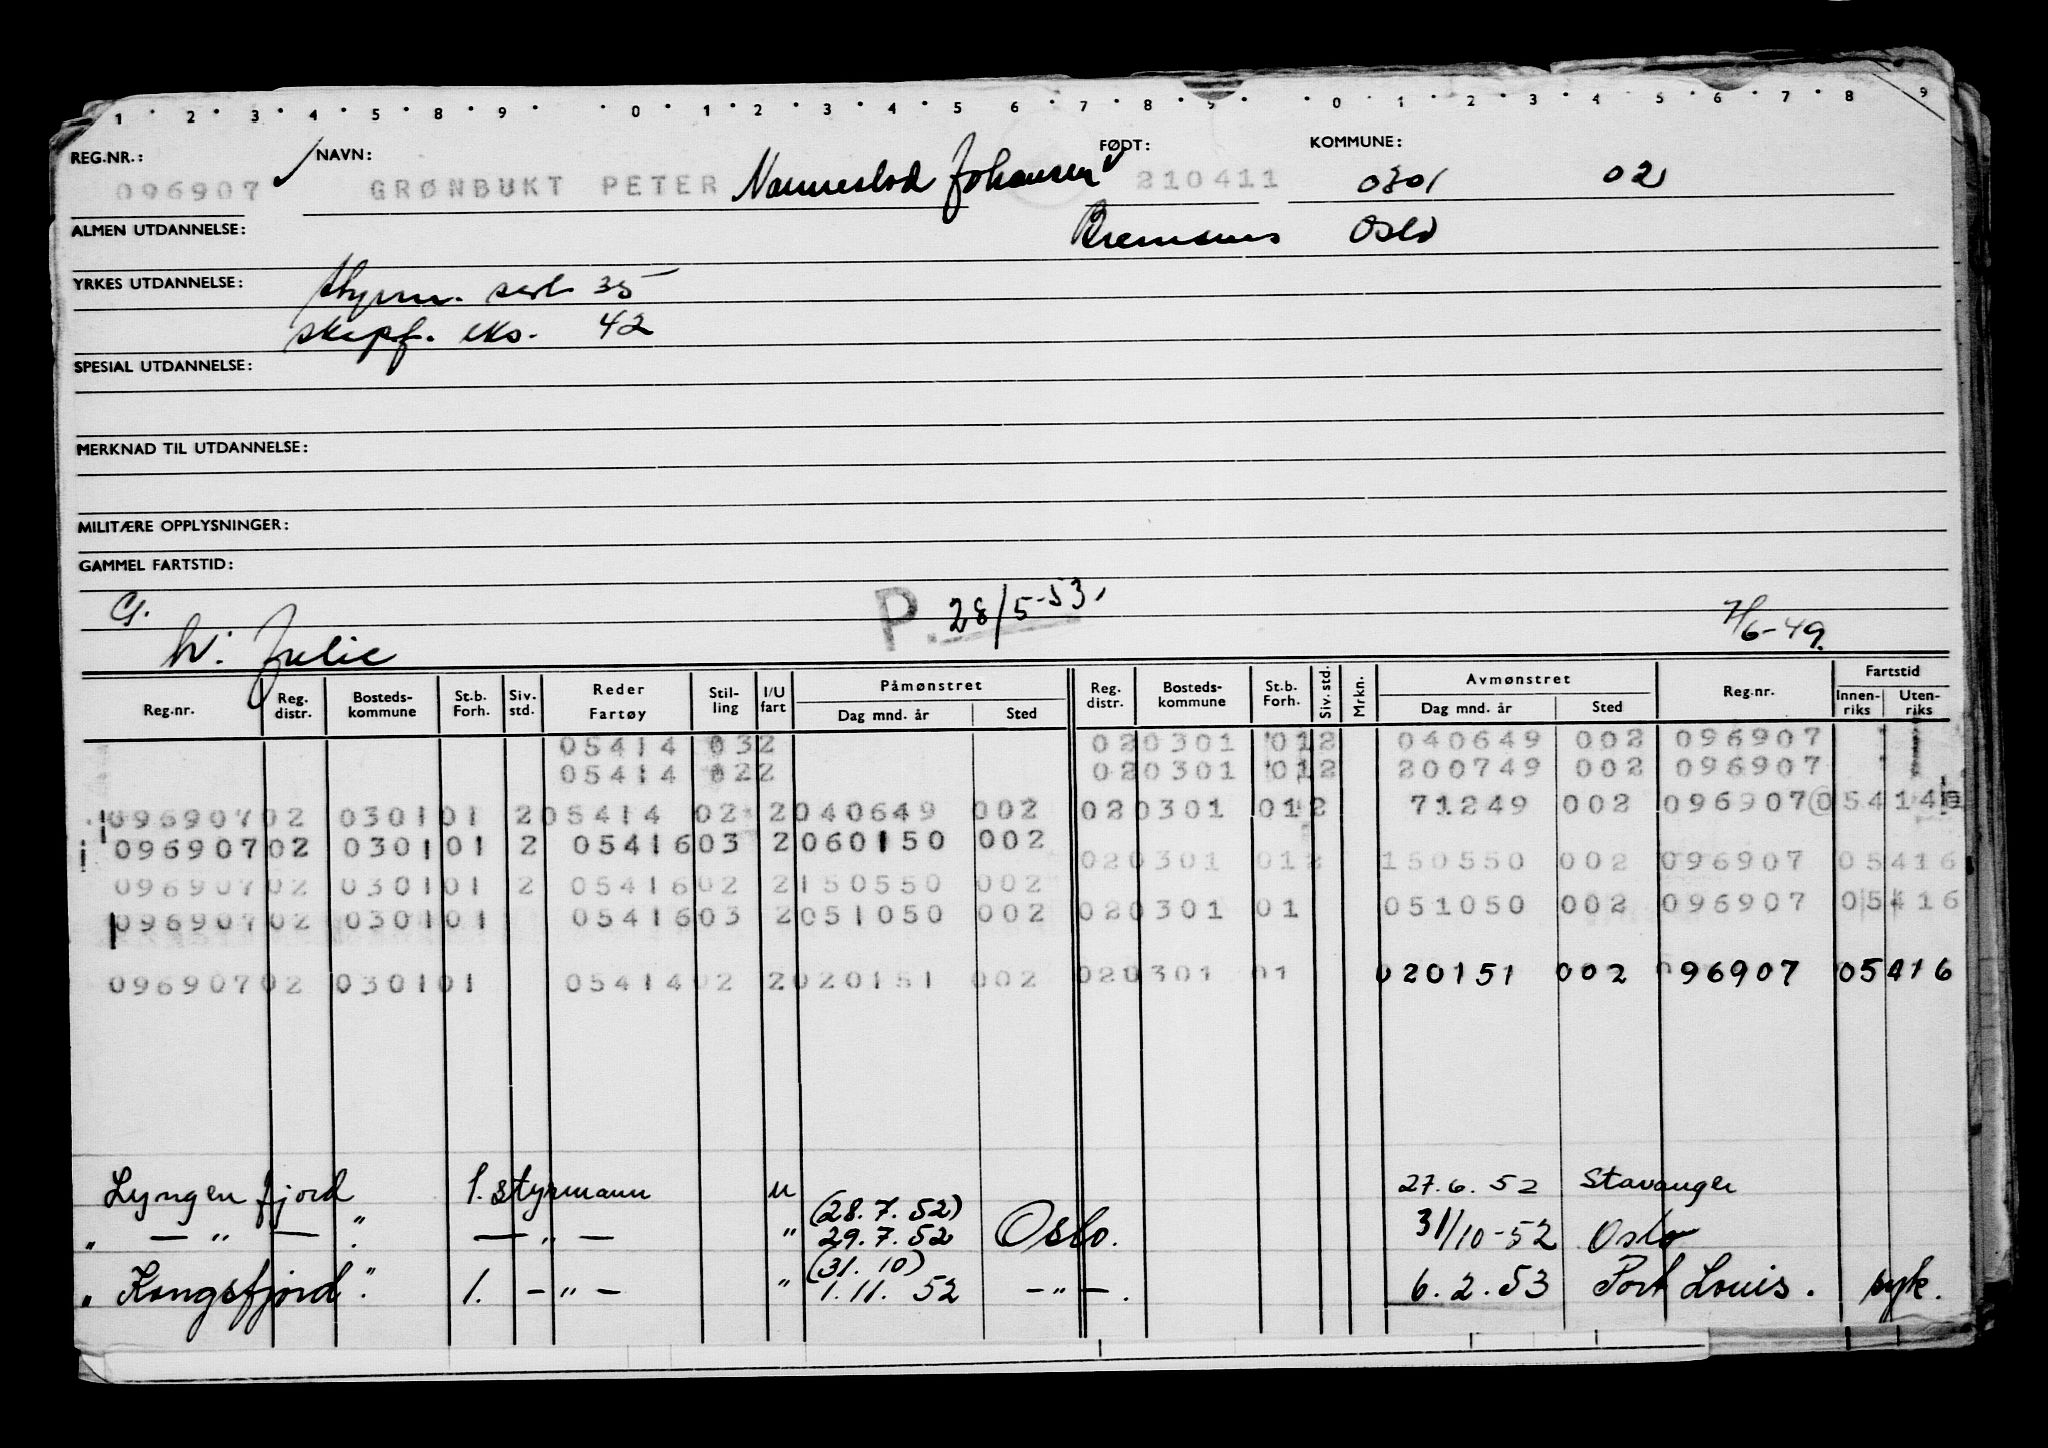 1 2 3 4 5 8 9 0 1 2 3 4 5 6 7 8 9 0 1 2 3 4 5 6 7 8 9
REG.NR.: NAVN: FØDT: KOMMUNE:
096907 GRØNBUKT PETER Johansen 210411 0301 02
ALMEN UTDANNELSE: Bremsnes Oslo
YRKES UTDANNELSE: styrm. sert 35
skipsf. eks. 42
SPESIAL UTDANNELSE:
MERKNAD TIL UTDANNELSE:
MILITÆRE OPPLYSNINGER:
GAMMEL FARTSTID:
G. P. 28/5-53. 7/6-49.
h: Julie
Reg.nr. Reg. distr. Bosteds-kommune St.b. Forh. Siv. std. Reder Fartøy Stil-ling I/U fart Påmønstret Dag mnd. år Sted Reg. distr. Bosteds-kommune St.b. Forh. Siv. std. Mrkn. Avmønstret Dag mnd. år Sted Reg.nr. Fartstid Innen-riks Uten-riks
05414 032 020301 012 040649 002 096907
05414 022 020301 012 200749 002 096907
09690702 030101 205414 02 2040649 002 020301 012 71249 002 096907 05414
09690702 030101 2 0541603 2060150 002
020301 012 150550 002 096907 05416
09690702 030101 2 0541602 2150550 002
09690702 030101 0541603 2051050 002 020301 01 051050 002 096907 05416
09690702 030101 0541402 2020151 002 020301 01 020151 002 096907 05416
Lyngenfjord 1. styrmann u 27.6.52 Stavanger
(28.7.52)
" — " — " — " — " 29.7.52 Oslo. 31/10-52 Oslo
(31.10)
" Kongsfjord " 1. — " — " 1.11.52 — " —. 6.2.53 Port Louis. syk.